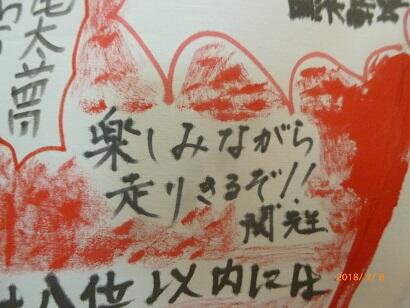 楽しみながら
走りきるぞ!!
関先生
八位以内には
2018/2/8